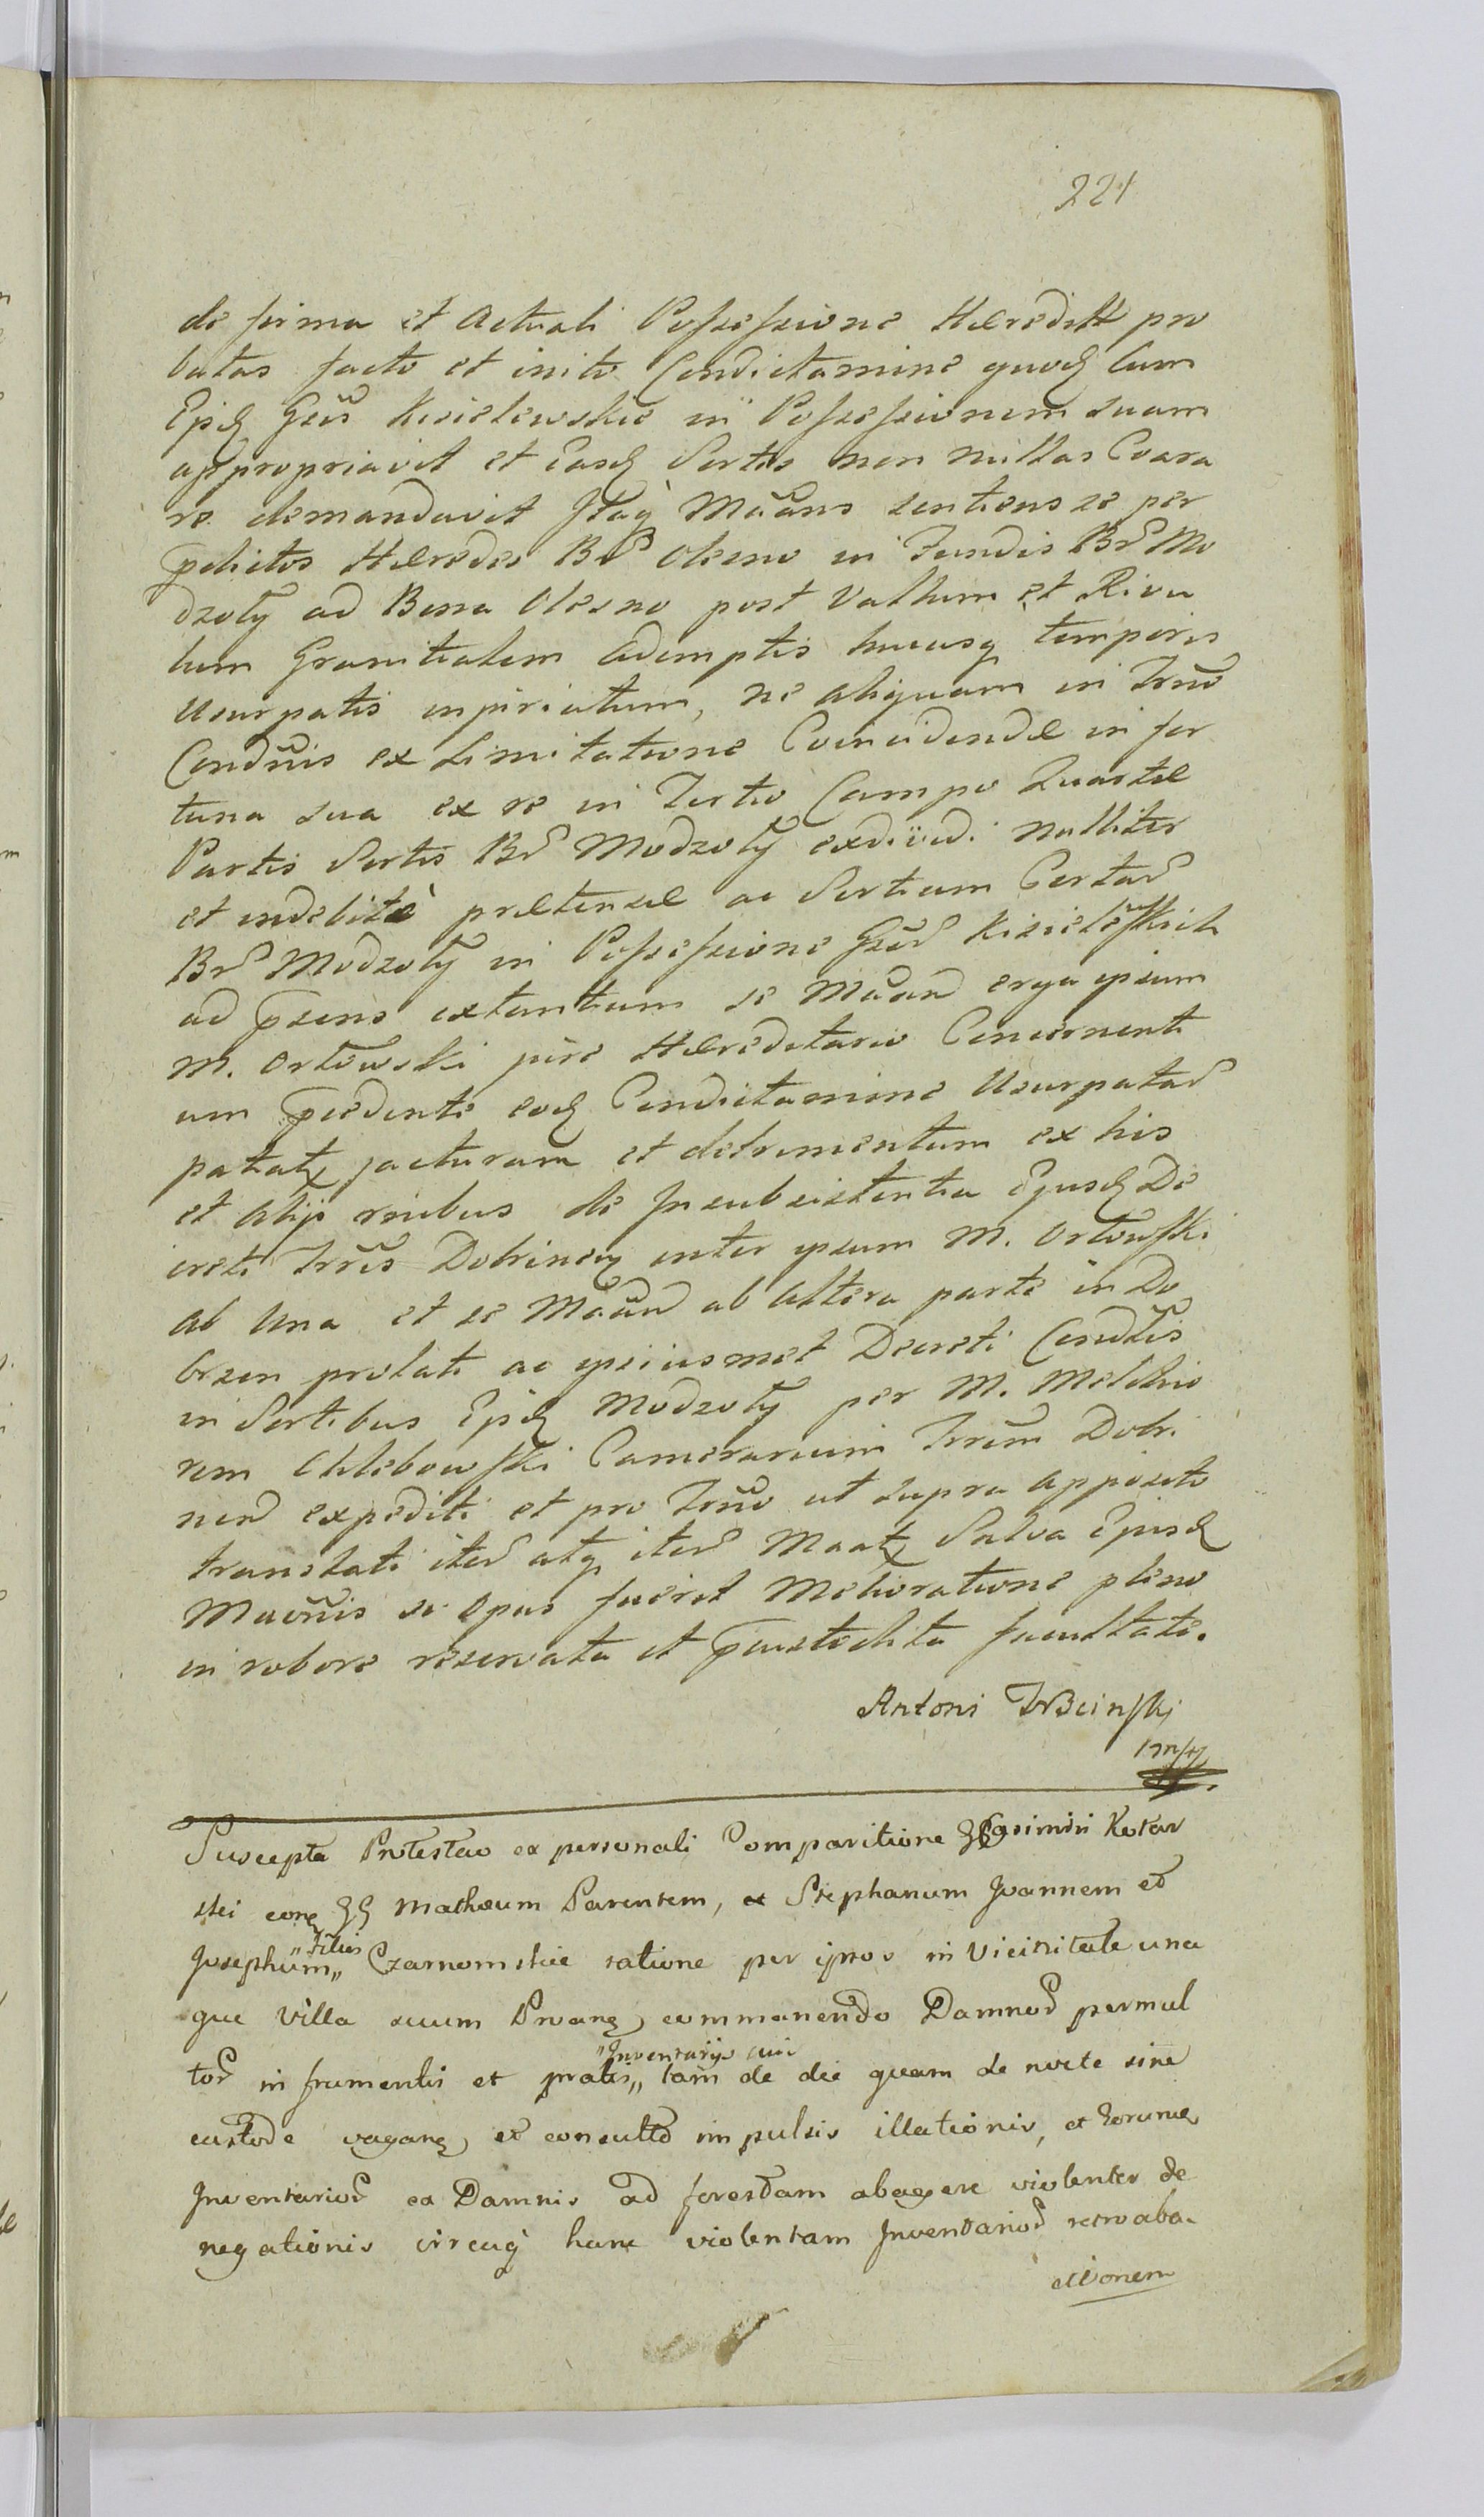 221
de firma et Actuali Possessione Hæreditt pro
batas facto et inito Condictamine quod cum
Gsis Kisielewskie in Possessionem suam
appropriavit et Easd Sortes non nullas Coara
re demandavit Itaq Maans sentiens se per
plitos Hæredes Br Olesno in Fundis Br Mo
dzoty ad Bona Olesno post Vallum et Rivu
lum Granitialem Ademptis hucusq temporis
Usurpatis injuriatum, ne aliquam in Trno
Condnis ex Limitatione Coincidendæ in for
tuna sua ex re in Tertio Campo Quartæ
Partis Sortis Br Modzoty nulliter
et indebitè prætensæ ac Sortium Certar
Br Modzoty in Possessione Gsor Kisielewskich
ad psens extantium se Maan erga ipsum
M. Orłowski jure Hæreditario Concernenti
um pcedenti eod Condictamine Usurpatar
patat jacturam et detrimentum ex his
et Alijs rnibus de Insubsistentia Ejusd De
creti Trris Dobrinen inter ipsum M. Orłowski
ab Una et se Maan ab Altera parte in Do
brzen prolati ac ipsiusmet Decreti Condtis
in Sortibus Modzoty per M. Melchio
rem Chlebowski Camerarium Trrem Dobri
nen expediti et pro Trno ut supra Apposito
translati iter atq iter Maat Salva Ejusd
Maonis si Opus fuerit Melioratione pleno
in robore reservata et pcustodita facultate.
Antoni Trzcinski
mp
Suscepta Protestao ex personali Comparitione Casimiri Kotar
ski con GG Mathæum Parentem, et Stephanum Joannem et
Josephum „Filios„ Czarnomskie ratione per ipsos in Vicinitate una
que Villa secum commanendo Damnor permul
tor in frumentis et pratis „Inventarijs suis„ tam de die quam de nocte sine
custode vagan et consulto impulsis illationis, et horum
Inventarior ex Damnis ad forestam abagere violenter de
negationis circaq hanc violentam Inventarior retroaba-
ctionem